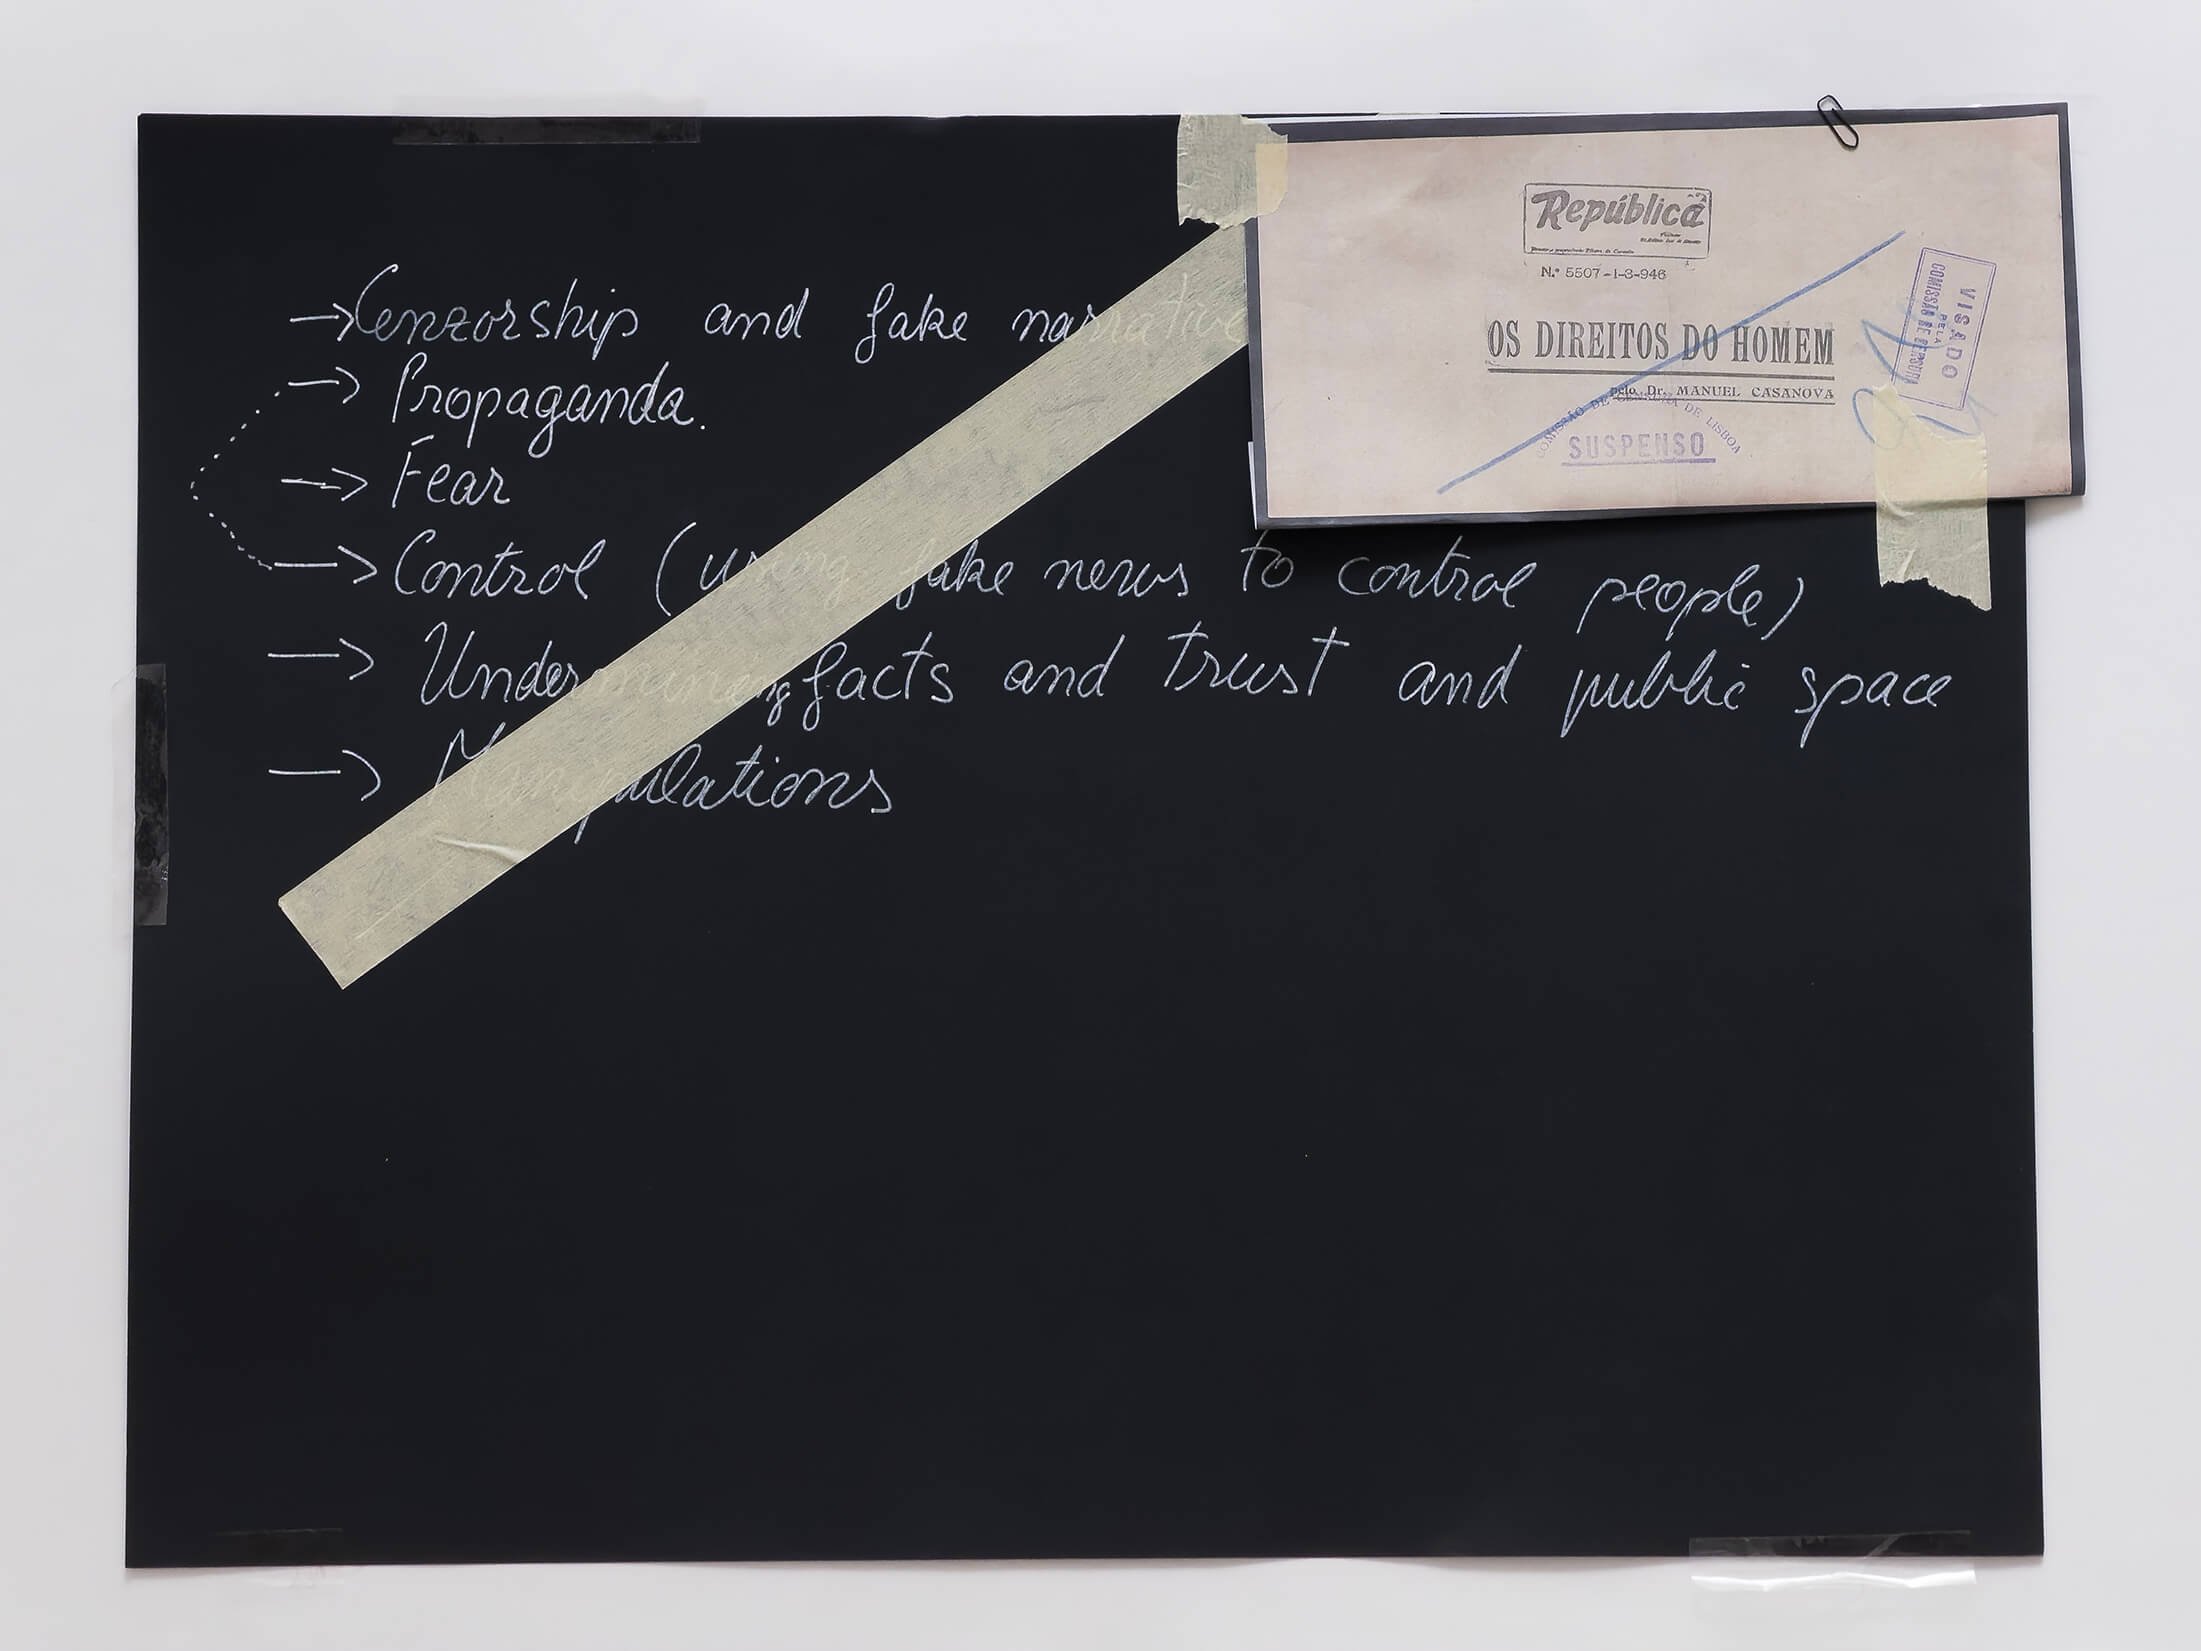 → Cenzorship and fake narrative
→ Propaganda.
→ Fear
→ Control (using fake news to control people)
→ Undermining facts and trust and public space
→ Manipulations
República
N.º 5507-1-3-946
OS DIREITOS DO HOMEM
pelo Dr. MANUEL CASANOVA
COMISSÃO DE CENSURA DE LISBOA
SUSPENSO
VISADO
PELA
COMISSÃO DE CENSURA